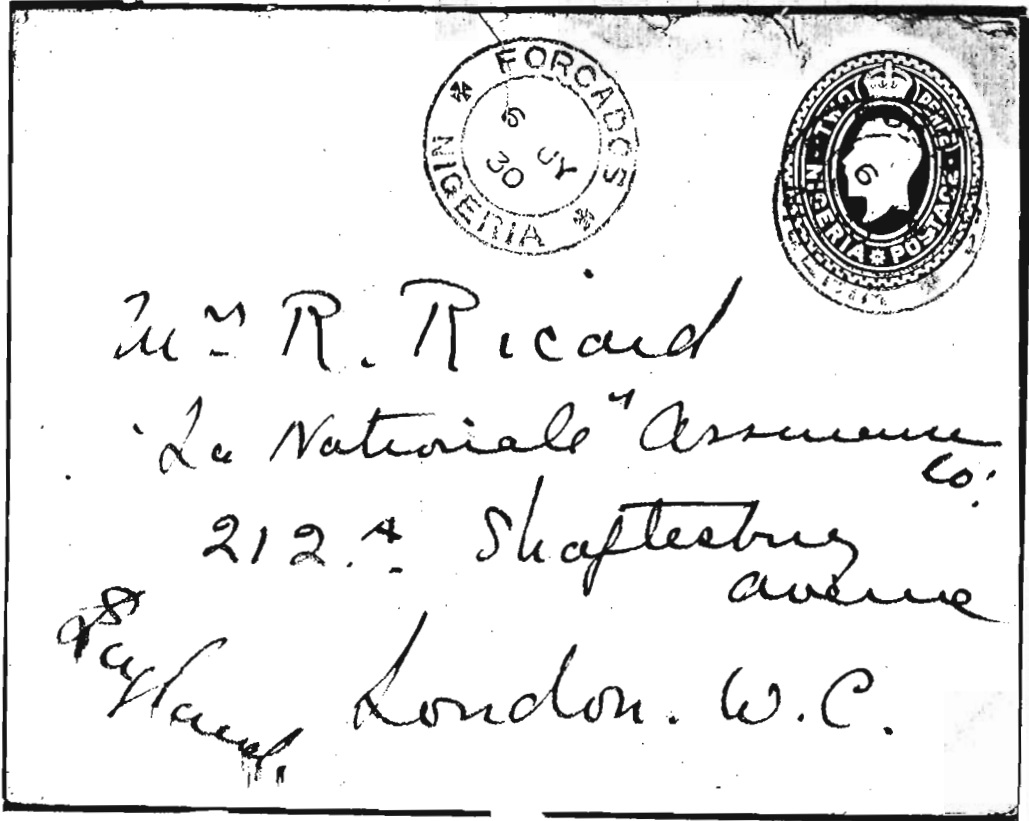 FORCADOS
6 JY
30
* NIGERIA *
NIGERIA * POSTAGE
6
Mr R. Ricard
"La Nationale" Assurance
Co.
212A Shaftesbury
Avenue
London. W.C.
England.